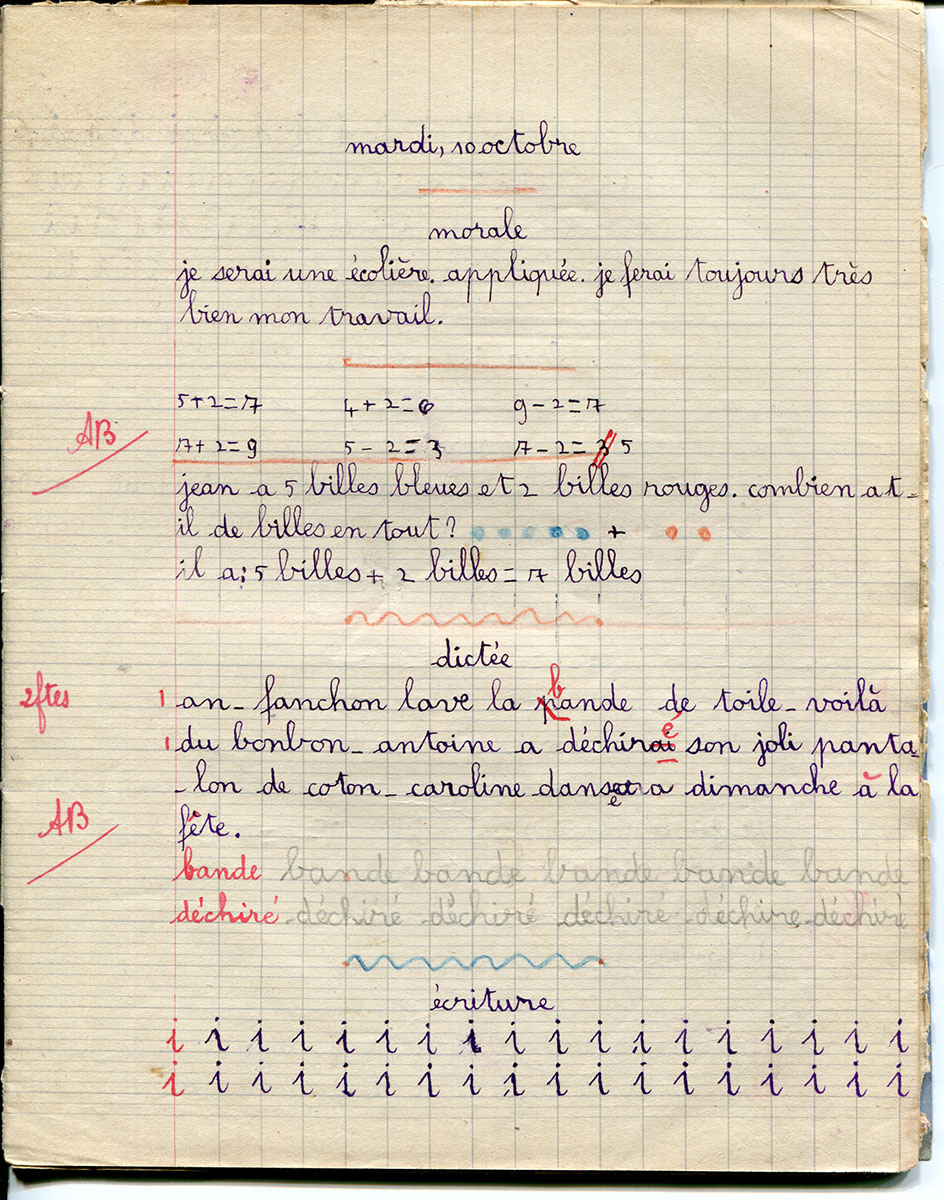 mardi, 10 octobre
morale
je serai une écolière. appliquée. je ferai toujours très
bien mon travail.
5+2=7 4+2=6 9-2=7
AB
7+2=9 5-2=3 7-2=3 5
jean a 5 billes bleues et 2 billes rouges. combien a t-
il de billes en tout? +
il a: 5 billes + 2 billes = 7 billes
dictée
2ftes 1 an_ fanchon lave la pande b de toile_ voilà
1 du bonbon_ antoine a déchirai é son joli panta-
_lon de coton_ caroline dansera dimanche à la
AB
fête.
bande bande bande bande bande bande
déchiré déchiré déchiré déchiré déchire déchiré
écriture
i i i i i i i i i i i i i i i i i i
i i i i i i i i i i i i i i i i i i